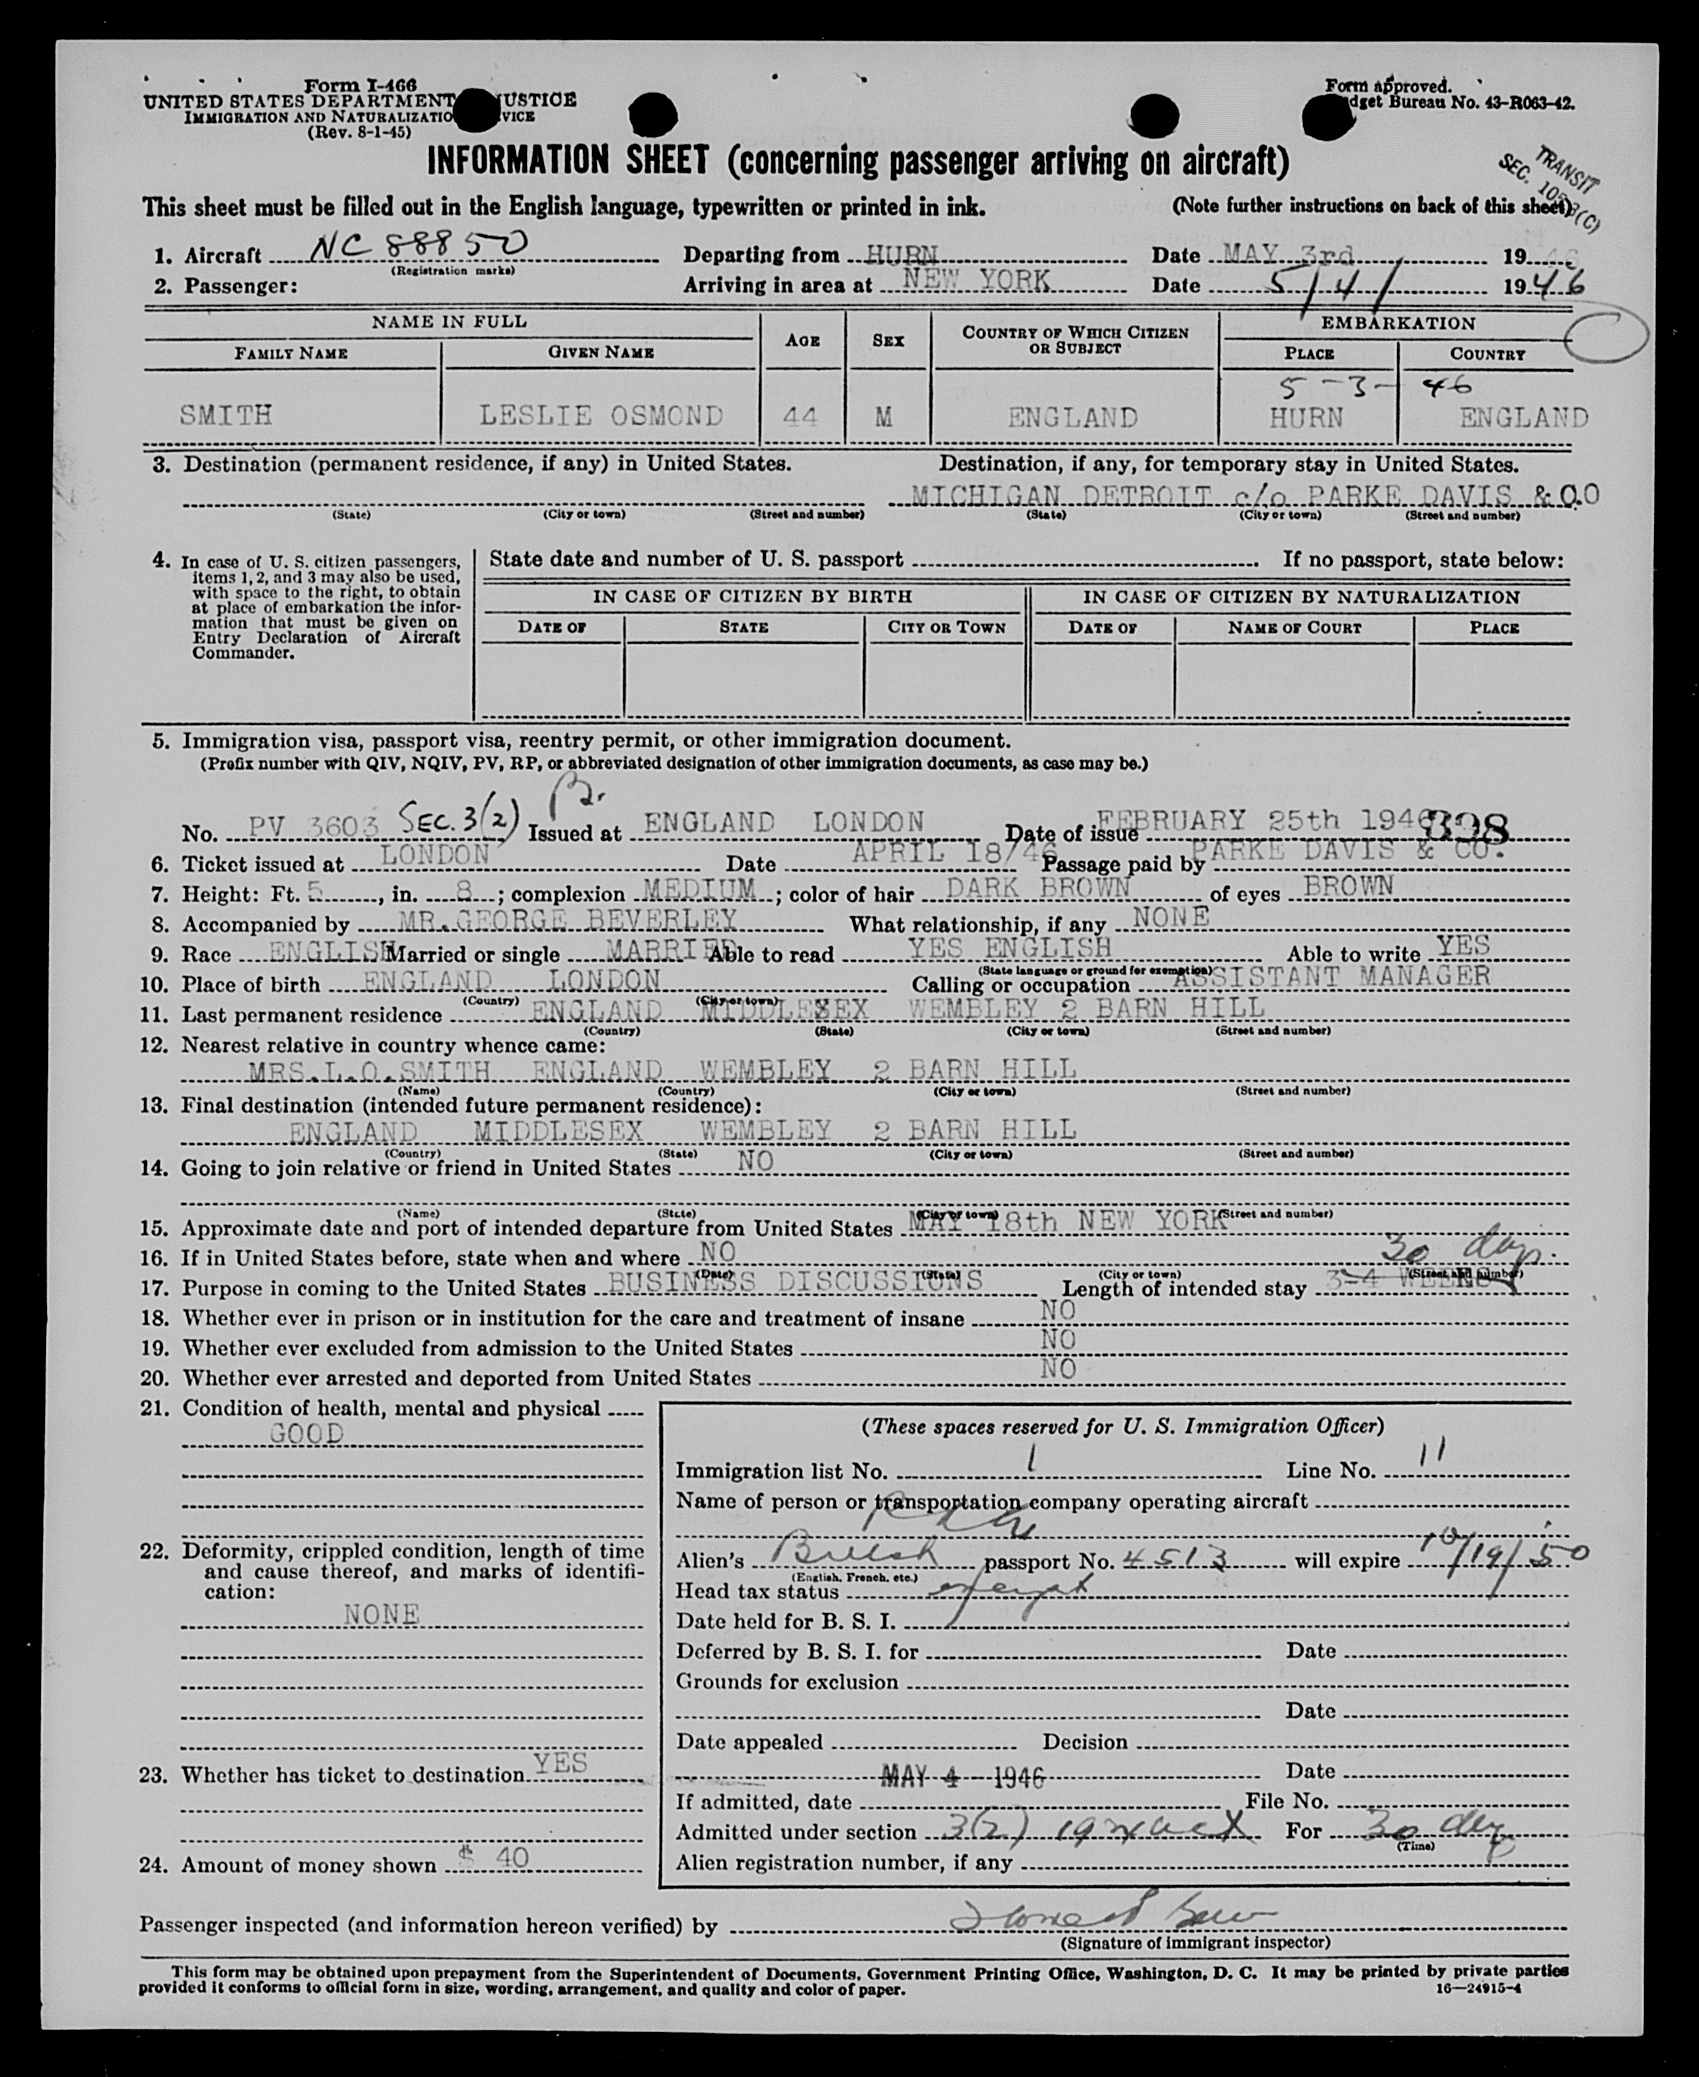 Form I-466
UNITED STATES DEPARTMENT USTICE
IMMIGRATION AND NATURALIZATIO VICE
(Rev. 8-1-45)
Form approved.
dget Bureau No. 43-R063-42.
INFORMATION SHEET (concerning passenger arriving on aircraft)
TRANSIT
SEC.
This sheet must be filled out in the English language, typewritten or printed in ink. (Note further instructions on back of this sheet)
1. Aircraft NC 88850 Departing from HURN Date MAY 3rd 1946
(Registration marks)
2. Passenger: Arriving in area at NEW YORK Date 5/4/ 1946
NAME IN FULL AGE SEX COUNTRY OF WHICH CITIZEN OR SUBJECT EMBARKATION
FAMILY NAME GIVEN NAME PLACE COUNTRY
5-3-46
SMITH LESLIE OSMOND 44 M ENGLAND HURN ENGLAND
3. Destination (permanent residence, if any) in United States. Destination, if any, for temporary stay in United States.
MICHIGAN DETROIT c/o PARKE DAVIS & CO
(State) (City or town) (Street and number) (State) (City or town) (Street and number)
4. In case of U. S. citizen passengers, items 1, 2, and 3 may also be used, with space to the right, to obtain at place of embarkation the information that must be given on Entry Declaration of Aircraft Commander.
State date and number of U. S. passport If no passport, state below:
IN CASE OF CITIZEN BY BIRTH IN CASE OF CITIZEN BY NATURALIZATION
DATE OF STATE CITY OR TOWN DATE OF NAME OF COURT PLACE
5. Immigration visa, passport visa, reentry permit, or other immigration document.
(Prefix number with QIV, NQIV, PV, RP, or abbreviated designation of other immigration documents, as case may be.)
No. PV 3603 SEC. 3(2) Issued at ENGLAND LONDON Date of issue FEBRUARY 25th 1946 398
6. Ticket issued at LONDON Date APRIL 18/46 Passage paid by PARKE DAVIS & CO.
7. Height: Ft. 5, in. 8; complexion MEDIUM; color of hair DARK BROWN of eyes BROWN
8. Accompanied by MR.GEORGE BEVERLEY What relationship, if any NONE
9. Race ENGLISH Married or single MARRIED Able to read YES ENGLISH Able to write YES
(State language or ground for exemption)
10. Place of birth ENGLAND LONDON Calling or occupation ASSISTANT MANAGER
(Country) (City or town)
11. Last permanent residence ENGLAND MIDDLESEX WEMBLEY 2 BARN HILL
(Country) (State) (City or town) (Street and number)
12. Nearest relative in country whence came:
MRS.L.O.SMITH ENGLAND WEMBLEY 2 BARN HILL
(Name) (Country) (City or town) (Street and number)
13. Final destination (intended future permanent residence):
ENGLAND MIDDLESEX WEMBLEY 2 BARN HILL
(Country) (State) (City or town) (Street and number)
14. Going to join relative or friend in United States NO
(Name) (State) (City or town) (Street and number)
15. Approximate date and port of intended departure from United States MAY 18th NEW YORK
16. If in United States before, state when and where NO 30 days
(Date) (State) (City or town) (Street and number)
17. Purpose in coming to the United States BUSINESS DISCUSSIONS Length of intended stay 3-4 WEEKS
18. Whether ever in prison or in institution for the care and treatment of insane NO
19. Whether ever excluded from admission to the United States NO
20. Whether ever arrested and deported from United States NO
21. Condition of health, mental and physical
GOOD
(These spaces reserved for U. S. Immigration Officer)
Immigration list No. 1 Line No. 11
Name of person or transportation company operating aircraft
22. Deformity, crippled condition, length of time and cause thereof, and marks of identification:
NONE
Alien's British passport No. 4513 will expire 10/19/50
(English, French, etc.)
Head tax status exempt
Date held for B. S. I.
Deferred by B. S. I. for Date
Grounds for exclusion
Date
Date appealed Decision
23. Whether has ticket to destination YES
MAY 4 1946 Date
If admitted, date File No.
Admitted under section 3(2) 1924 act For 30 days
(Time)
24. Amount of money shown $ 40
Alien registration number, if any
Passenger inspected (and information hereon verified) by
(Signature of immigrant inspector)
This form may be obtained upon prepayment from the Superintendent of Documents, Government Printing Office, Washington, D. C. It may be printed by private parties
provided it conforms to official form in size, wording, arrangement, and quality and color of paper.
16—24915-4